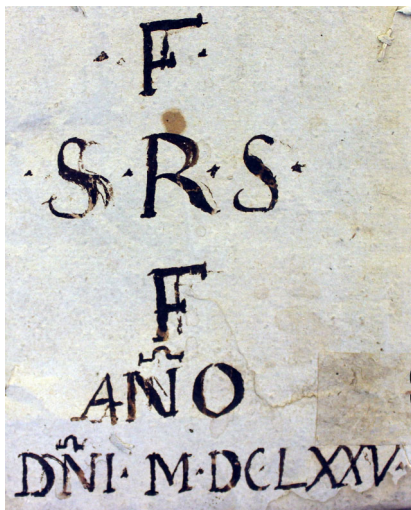 · F ·
· S · R · S ·
F
AÑO
DÑI · M · DCLXXV ·